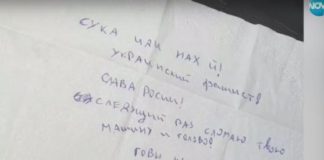 NOVA
СУКА ИДИ НАХ Й!
УКРАИНСКИЙ ФАШИСТ
СЛАВА РОСИИ!
СЛЕДУЩИЙ РАЗ СЛОМАЮ ТВОЮ
МАШИНУ И ГОЛОВУ!